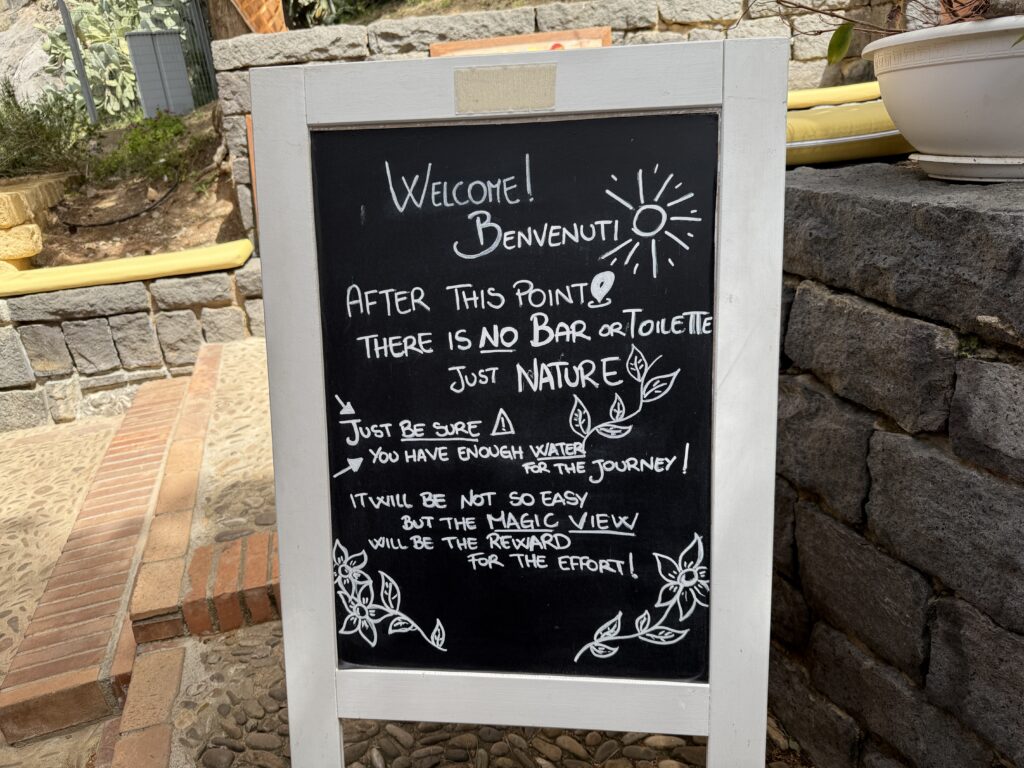 WELCOME!
BENVENUTI
AFTER THIS POINT
THERE IS NO BAR OR TOILETTE
JUST NATURE
JUST BE SURE
YOU HAVE ENOUGH WATER
FOR THE JOURNEY!
IT WILL BE NOT SO EASY
BUT THE MAGIC VIEW
WILL BE THE REWARD
FOR THE EFFORT!